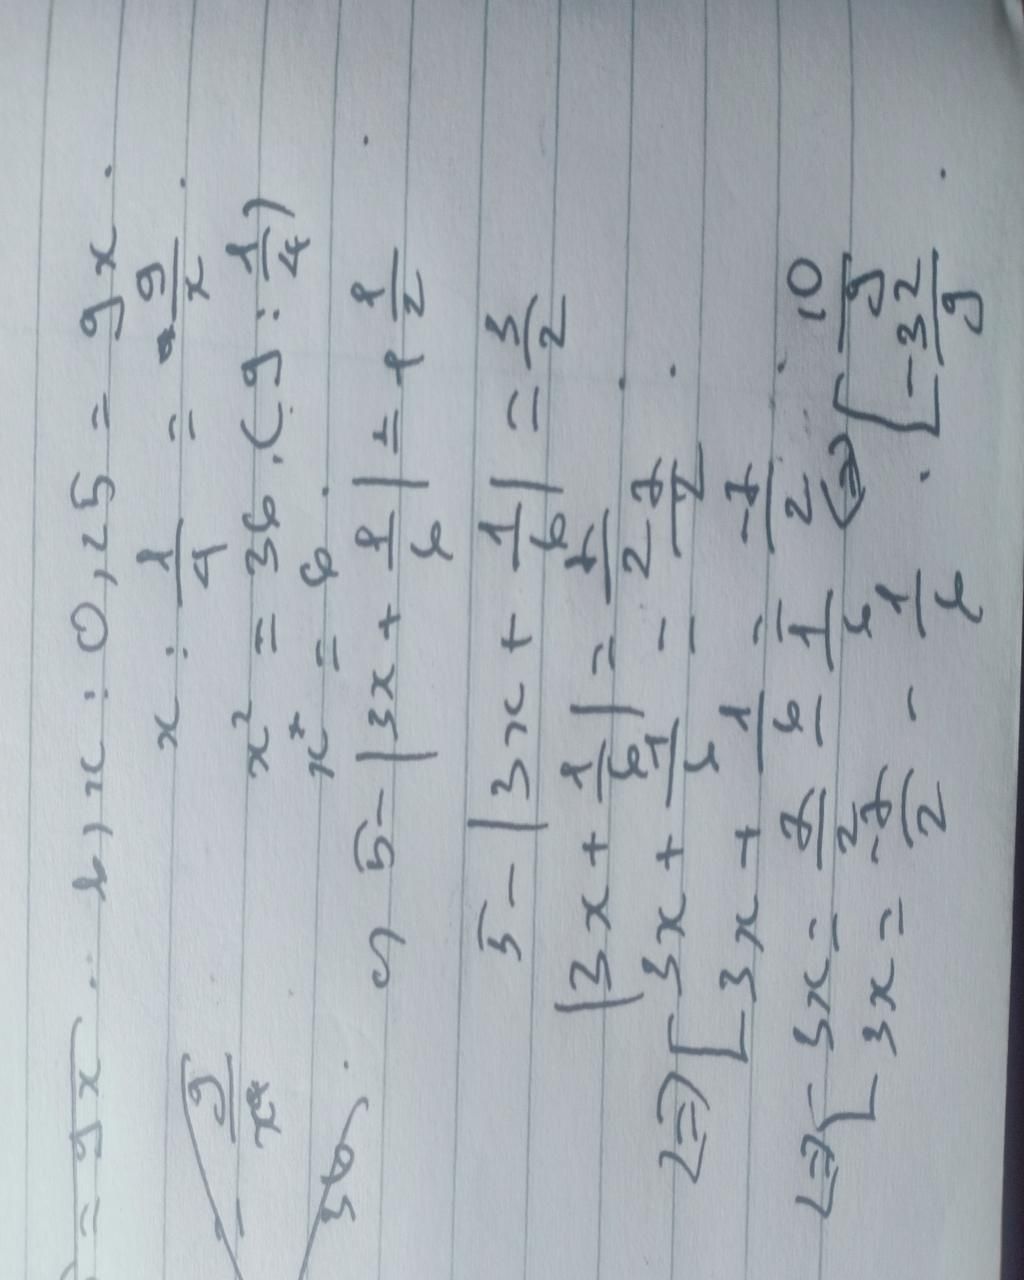 b) x : 0,25 = 9x
x : 1/4 = 9/x
x² = 36 . (9 : 1/4)
x = 6
5 - |3x + 1/6| = 1 1/2
5 - |3x + 1/6| = 3/2
|3x + 1/6| = 7/2
<=> [ 3x + 1/6 = 7/2
3x + 1/6 = -7/2
<=> [ 3x = 7/2 - 1/6
3x = -7/2 - 1/6
<=> [ 10/9
-32/9
= 9x
= 9/x
36